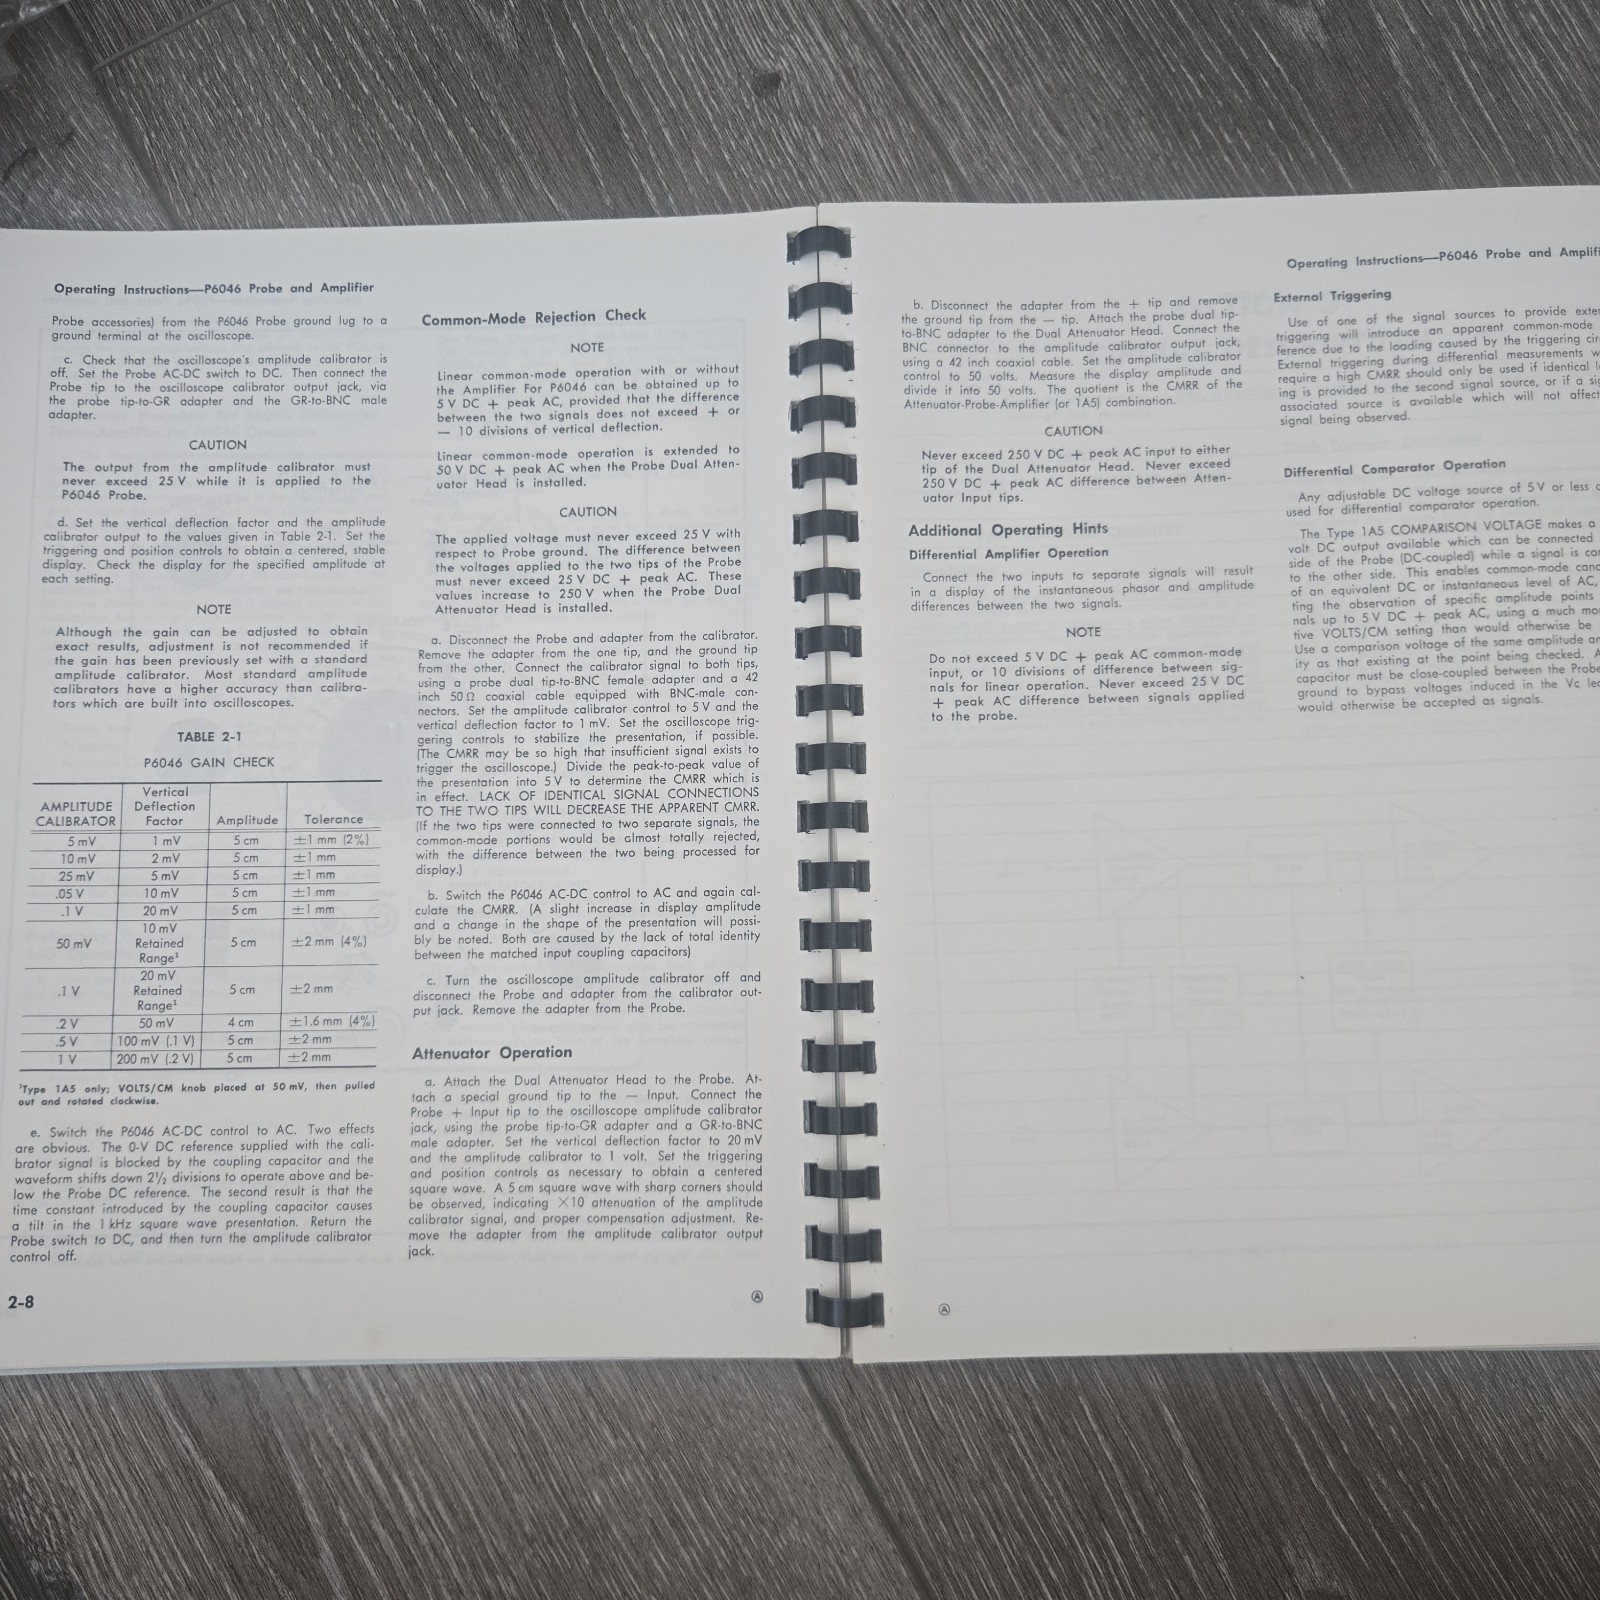 Operating Instructions—P6046 Probe and Amplifier
Probe accessories) from the P6046 Probe ground lug to a
ground terminal at the oscilloscope.
c. Check that the oscilloscope's amplitude calibrator is
off. Set the Probe AC-DC switch to DC. Then connect the
Probe tip to the oscilloscope calibrator output jack, via
the probe tip-to-GR adapter and the GR-to-BNC male
adapter.
CAUTION
The output from the amplitude calibrator must
never exceed 25 V while it is applied to the
P6046 Probe.
d. Set the vertical deflection factor and the amplitude
calibrator output to the values given in Table 2-1. Set the
triggering and position controls to obtain a centered, stable
display. Check the display for the specified amplitude at
each setting.
NOTE
Although the gain can be adjusted to obtain
exact results, adjustment is not recommended if
the gain has been previously set with a standard
amplitude calibrator. Most standard amplitude
calibrators have a higher accuracy than calibra-
tors which are built into oscilloscopes.
TABLE 2-1
P6046 GAIN CHECK
AMPLITUDE CALIBRATOR | Vertical Deflection Factor | Amplitude | Tolerance
5 mV | 1 mV | 5 cm | ±1 mm (2%)
10 mV | 2 mV | 5 cm | ±1 mm
25 mV | 5 mV | 5 cm | ±1 mm
.05 V | 10 mV | 5 cm | ±1 mm
.1 V | 20 mV | 5 cm | ±1 mm
50 mV | 10 mV Retained Range¹ | 5 cm | ±2 mm (4%)
.1 V | 20 mV Retained Range¹ | 5 cm | ±2 mm
.2 V | 50 mV | 4 cm | ±1.6 mm (4%)
.5 V | 100 mV (.1 V) | 5 cm | ±2 mm
1 V | 200 mV (.2 V) | 5 cm | ±2 mm
¹Type 1A5 only; VOLTS/CM knob placed at 50 mV, then pulled
out and rotated clockwise.
e. Switch the P6046 AC-DC control to AC. Two effects
are obvious. The 0-V DC reference supplied with the cali-
brator signal is blocked by the coupling capacitor and the
waveform shifts down 2½ divisions to operate above and be-
low the Probe DC reference. The second result is that the
time constant introduced by the coupling capacitor causes
a tilt in the 1 kHz square wave presentation. Return the
Probe switch to DC, and then turn the amplitude calibrator
control off.
2-8
Common-Mode Rejection Check
NOTE
Linear common-mode operation with or without
the Amplifier For P6046 can be obtained up to
5 V DC + peak AC, provided that the difference
between the two signals does not exceed + or
— 10 divisions of vertical deflection.
Linear common-mode operation is extended to
50 V DC + peak AC when the Probe Dual Atten-
uator Head is installed.
CAUTION
The applied voltage must never exceed 25 V with
respect to Probe ground. The difference between
the voltages applied to the two tips of the Probe
must never exceed 25 V DC + peak AC. These
values increase to 250 V when the Probe Dual
Attenuator Head is installed.
a. Disconnect the Probe and adapter from the calibrator.
Remove the adapter from the one tip, and the ground tip
from the other. Connect the calibrator signal to both tips,
using a probe dual tip-to-BNC female adapter and a 42
inch 50 Ω coaxial cable equipped with BNC-male con-
nectors. Set the amplitude calibrator control to 5 V and the
vertical deflection factor to 1 mV. Set the oscilloscope trig-
gering controls to stabilize the presentation, if possible.
(The CMRR may be so high that insufficient signal exists to
trigger the oscilloscope.) Divide the peak-to-peak value of
the presentation into 5 V to determine the CMRR which is
in effect. LACK OF IDENTICAL SIGNAL CONNECTIONS
TO THE TWO TIPS WILL DECREASE THE APPARENT CMRR.
(If the two tips were connected to two separate signals, the
common-mode portions would be almost totally rejected,
with the difference between the two being processed for
display.)
b. Switch the P6046 AC-DC control to AC and again cal-
culate the CMRR. (A slight increase in display amplitude
and a change in the shape of the presentation will possi-
bly be noted. Both are caused by the lack of total identity
between the matched input coupling capacitors)
c. Turn the oscilloscope amplitude calibrator off and
disconnect the Probe and adapter from the calibrator out-
put jack. Remove the adapter from the Probe.
Attenuator Operation
a. Attach the Dual Attenuator Head to the Probe. At-
tach a special ground tip to the — Input. Connect the
Probe + Input tip to the oscilloscope amplitude calibrator
jack, using the probe tip-to-GR adapter and a GR-to-BNC
male adapter. Set the vertical deflection factor to 20 mV
and the amplitude calibrator to 1 volt. Set the triggering
and position controls as necessary to obtain a centered
square wave. A 5 cm square wave with sharp corners should
be observed, indicating ×10 attenuation of the amplitude
calibrator signal, and proper compensation adjustment. Re-
move the adapter from the amplitude calibrator output
jack.
Ⓐ
Operating Instructions—P6046 Probe and Amplifi
b. Disconnect the adapter from the + tip and remove
the ground tip from the — tip. Attach the probe dual tip-
to-BNC adapter to the Dual Attenuator Head. Connect the
BNC connector to the amplitude calibrator output jack,
using a 42 inch coaxial cable. Set the amplitude calibrator
control to 50 volts. Measure the display amplitude and
divide it into 50 volts. The quotient is the CMRR of the
Attenuator-Probe-Amplifier (or 1A5) combination.
CAUTION
Never exceed 250 V DC + peak AC input to either
tip of the Dual Attenuator Head. Never exceed
250 V DC + peak AC difference between Atten-
uator Input tips.
Additional Operating Hints
Differential Amplifier Operation
Connect the two inputs to separate signals will result
in a display of the instantaneous phasor and amplitude
differences between the two signals.
NOTE
Do not exceed 5 V DC + peak AC common-mode
input, or 10 divisions of difference between sig-
nals for linear operation. Never exceed 25 V DC
+ peak AC difference between signals applied
to the probe.
Ⓐ
External Triggering
Use of one of the signal sources to provide exter
triggering will introduce an apparent common-mode
ference due to the loading caused by the triggering cir
External triggering during differential measurements w
require a high CMRR should only be used if identical l
ing is provided to the second signal source, or if a sig
associated source is available which will not affect
signal being observed.
Differential Comparator Operation
Any adjustable DC voltage source of 5 V or less c
used for differential comparator operation.
The Type 1A5 COMPARISON VOLTAGE makes a
volt DC output available which can be connected
side of the Probe (DC-coupled) while a signal is con
to the other side. This enables common-mode canc
of an equivalent DC or instantaneous level of AC,
ting the observation of specific amplitude points
nals up to 5 V DC + peak AC, using a much mo
tive VOLTS/CM setting than would otherwise be
Use a comparison voltage of the same amplitude an
ity as that existing at the point being checked. A
capacitor must be close-coupled between the Probe
ground to bypass voltages induced in the Vc lea
would otherwise be accepted as signals.